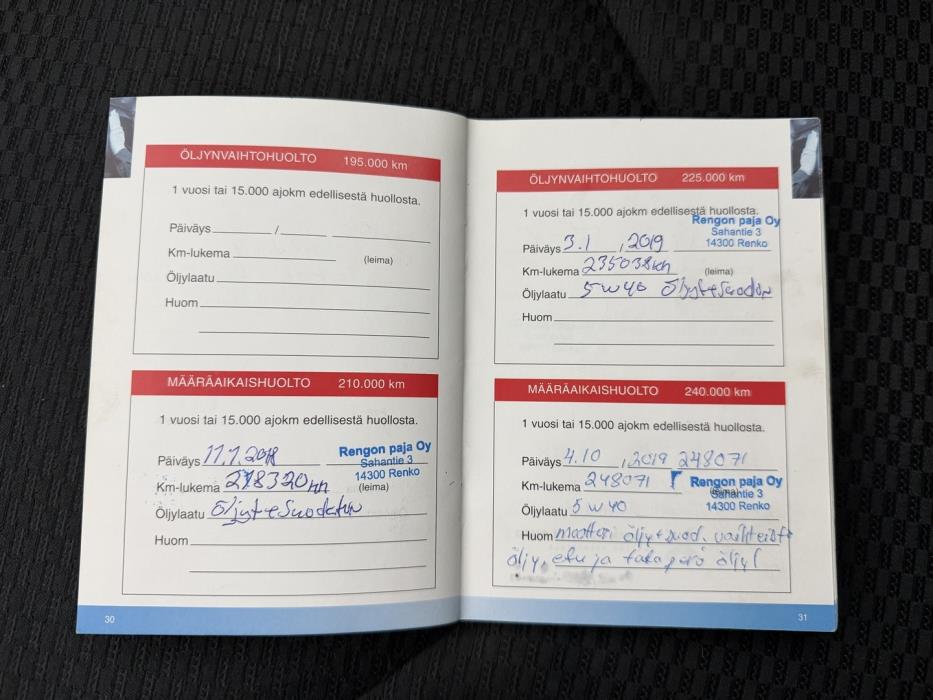 ÖLJYNVAIHTOHUOLTO 195.000 km
1 vuosi tai 15.000 ajokm edellisestä huollosta.
Päiväys / 
Km-lukema (leima)
Öljylaatu
Huom
MÄÄRÄAIKAISHUOLTO 210.000 km
1 vuosi tai 15.000 ajokm edellisestä huollosta.
Rengon paja Oy
Päiväys 11.1.2018 Sahantie 3
14300 Renko
Km-lukema 218320 km (leima)
Öljylaatu Öljyt+Suodatin
Huom
30
ÖLJYNVAIHTOHUOLTO 225.000 km
1 vuosi tai 15.000 ajokm edellisestä huollosta.
Rengon paja Oy
Sahantie 3
Päiväys 3.1 , 2019 14300 Renko
Km-lukema 235038km (leima)
Öljylaatu 5w40 Öljyt+Suodatin
Huom
MÄÄRÄAIKAISHUOLTO 240.000 km
1 vuosi tai 15.000 ajokm edellisestä huollosta.
Päiväys 4.10 , 2019 248071
Km-lukema 248071 Rengon paja Oy
Sahantie 3
Öljylaatu 5w40 14300 Renko
Huom moottori öljy+suod. vaihteisto
öljy, etu ja taka perä öljyt
31